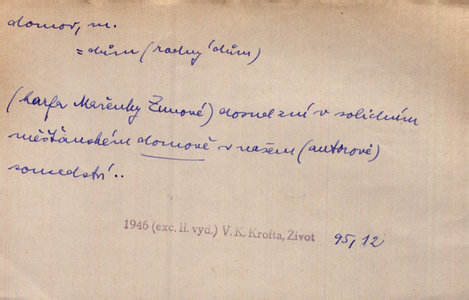 domov, m.
= dům (rodný dům)
(harfa Mařenky Zunové) dosud zní v solidním
měšťanském domově v našem (autorově)
sousedství..
1946 (exc. II. vyd.) V. K. Krofta, Život 95, 12